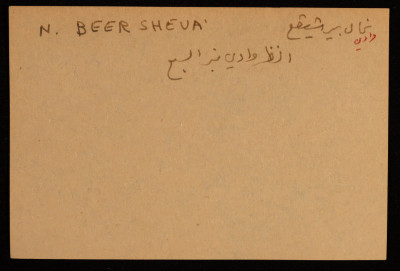 N. BEER SHEVA' نحال بير شيڤع
وادي
انظر وادي بئر السبع